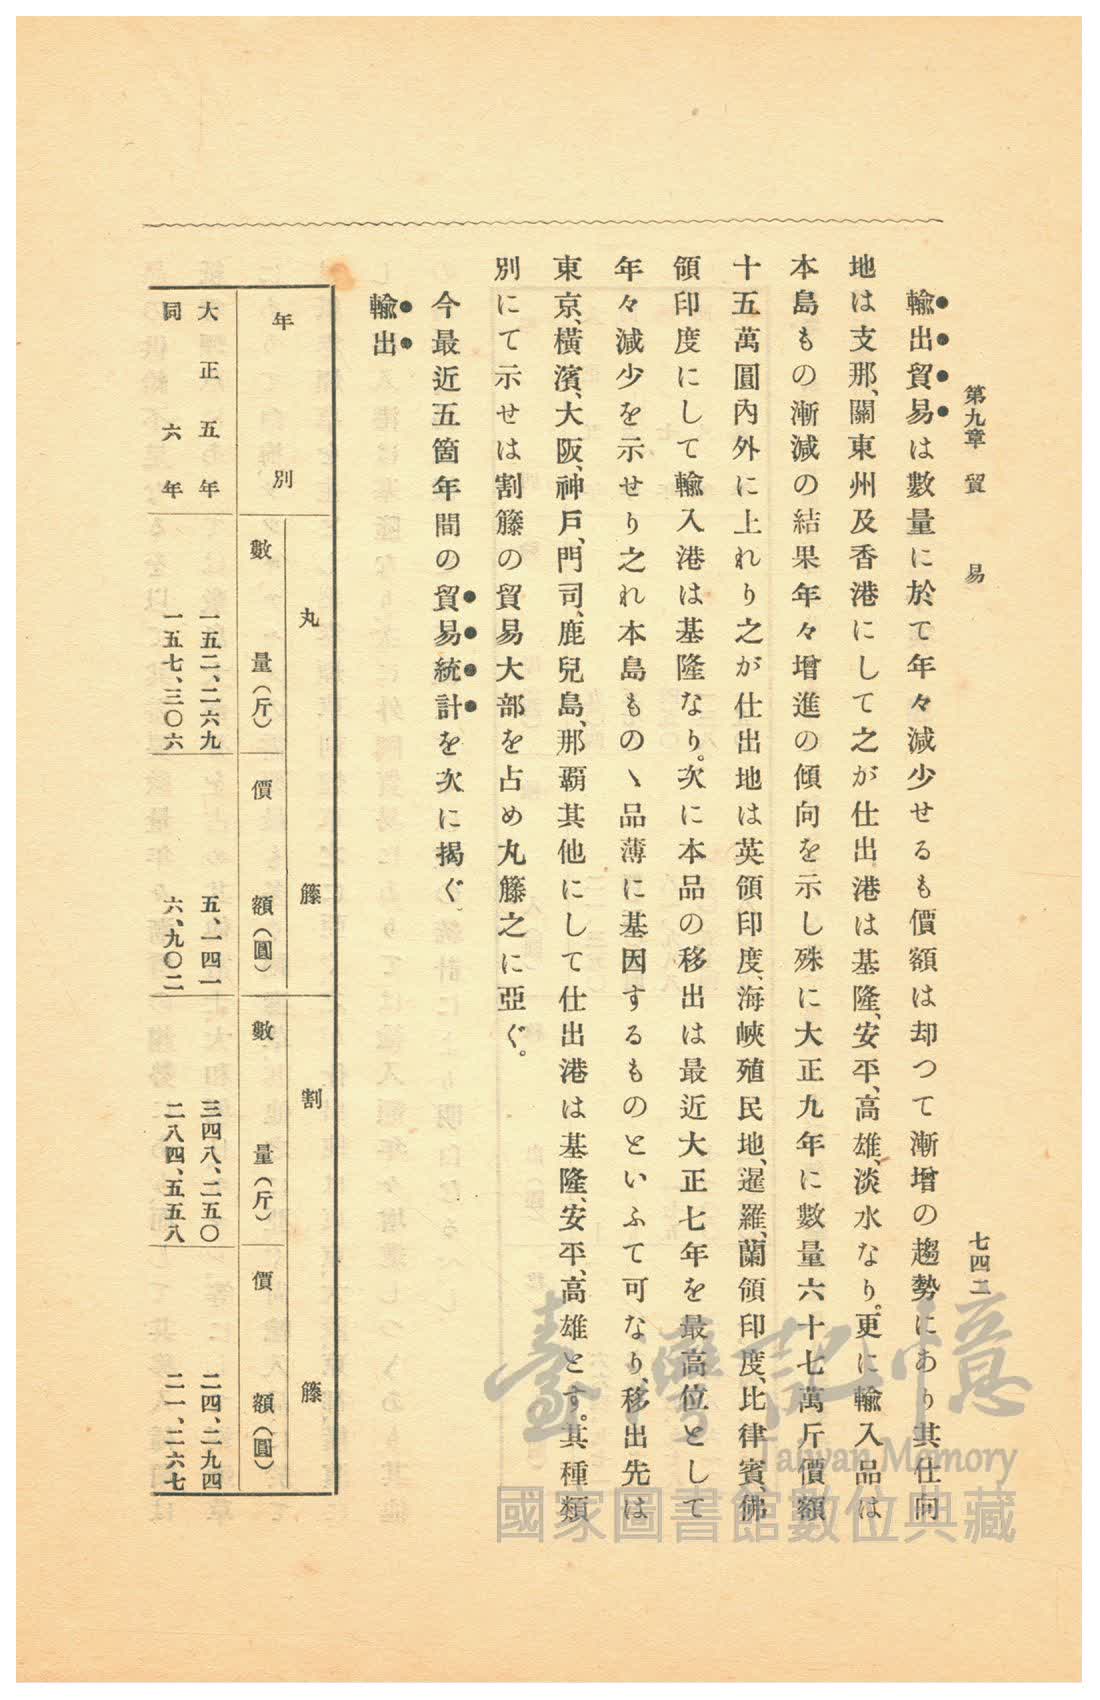 第九章 貿易
七四二
輸出貿易は數量に於て年々減少せるも價額は却つて漸增の趨勢にあり其仕向
地は支那、關東州及香港にして之が仕出港は基隆、安平、高雄、淡水なり。更に輸入品は
本島もの漸減の結果年々增進の傾向を示し殊に大正九年に數量六十七萬斤價額
十五萬圓內外に上れり之が仕出地は英領印度、海峽殖民地、暹羅、蘭領印度、比律賓、佛
領印度にして輸入港は基隆なり。次に本品の移出は最近大正七年を最高位として
年々減少を示せり之れ本島もの丶品薄に基因するものといふて可なり、移出先は
東京、橫濱、大阪、神戶、門司、鹿兒島、那覇其他にして仕出港は基隆、安平、高雄とす。其種類
別にて示せは割籐の貿易大部を占め丸籐之に亞ぐ。
今最近五箇年間の貿易統計を次に揭ぐ。
輸出
年別
丸籐
割籐
數量(斤)
價額(圓)
數量(斤)
價額(圓)
大正五年 一五二、二六九 五、一四一 三四八、二五〇 二四、二九四
同六年 一五七、三〇六 六、九〇二 二八四、五五八 二一、二六七
臺灣記憶
Taiwan Memory
國家圖書館數位典藏